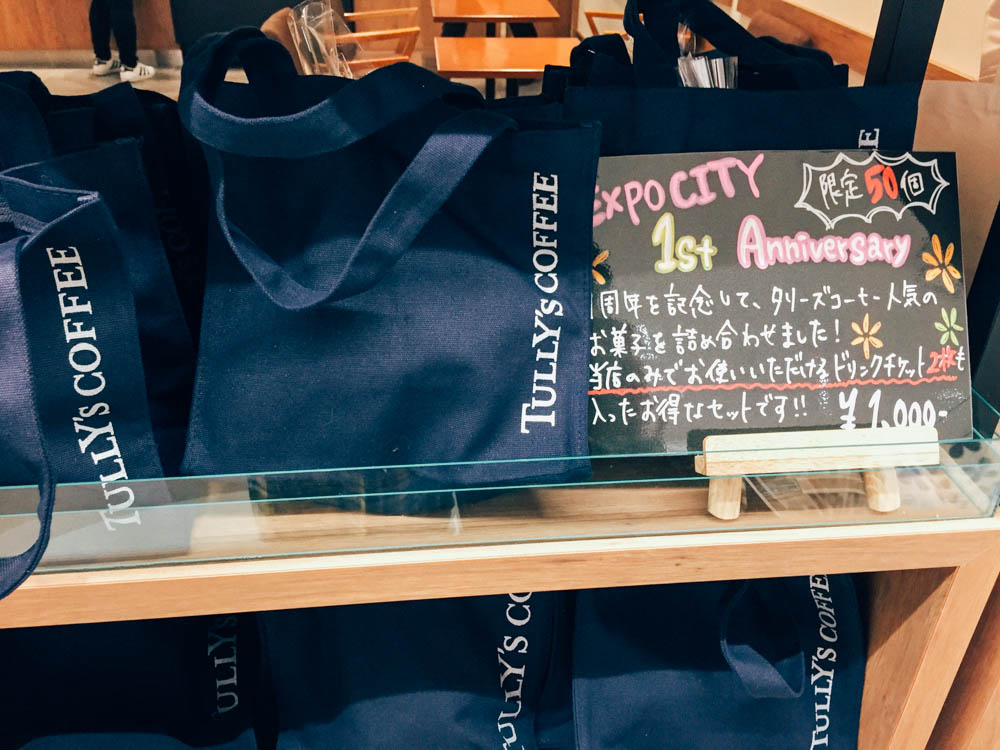 TULLY'S COFFEE
TULLY'S COFFEE
EXPO CITY
限定50個
1st Anniversary
1周年を記念して、タリーズコーヒー人気の
お菓子を詰め合わせました!
当店のみでお使いいただけるドリンクチケット2枚も
入ったお得なセットです!!
¥1,000-
TULLY'S
TULLY'S CO
TULLY'S COFFEE